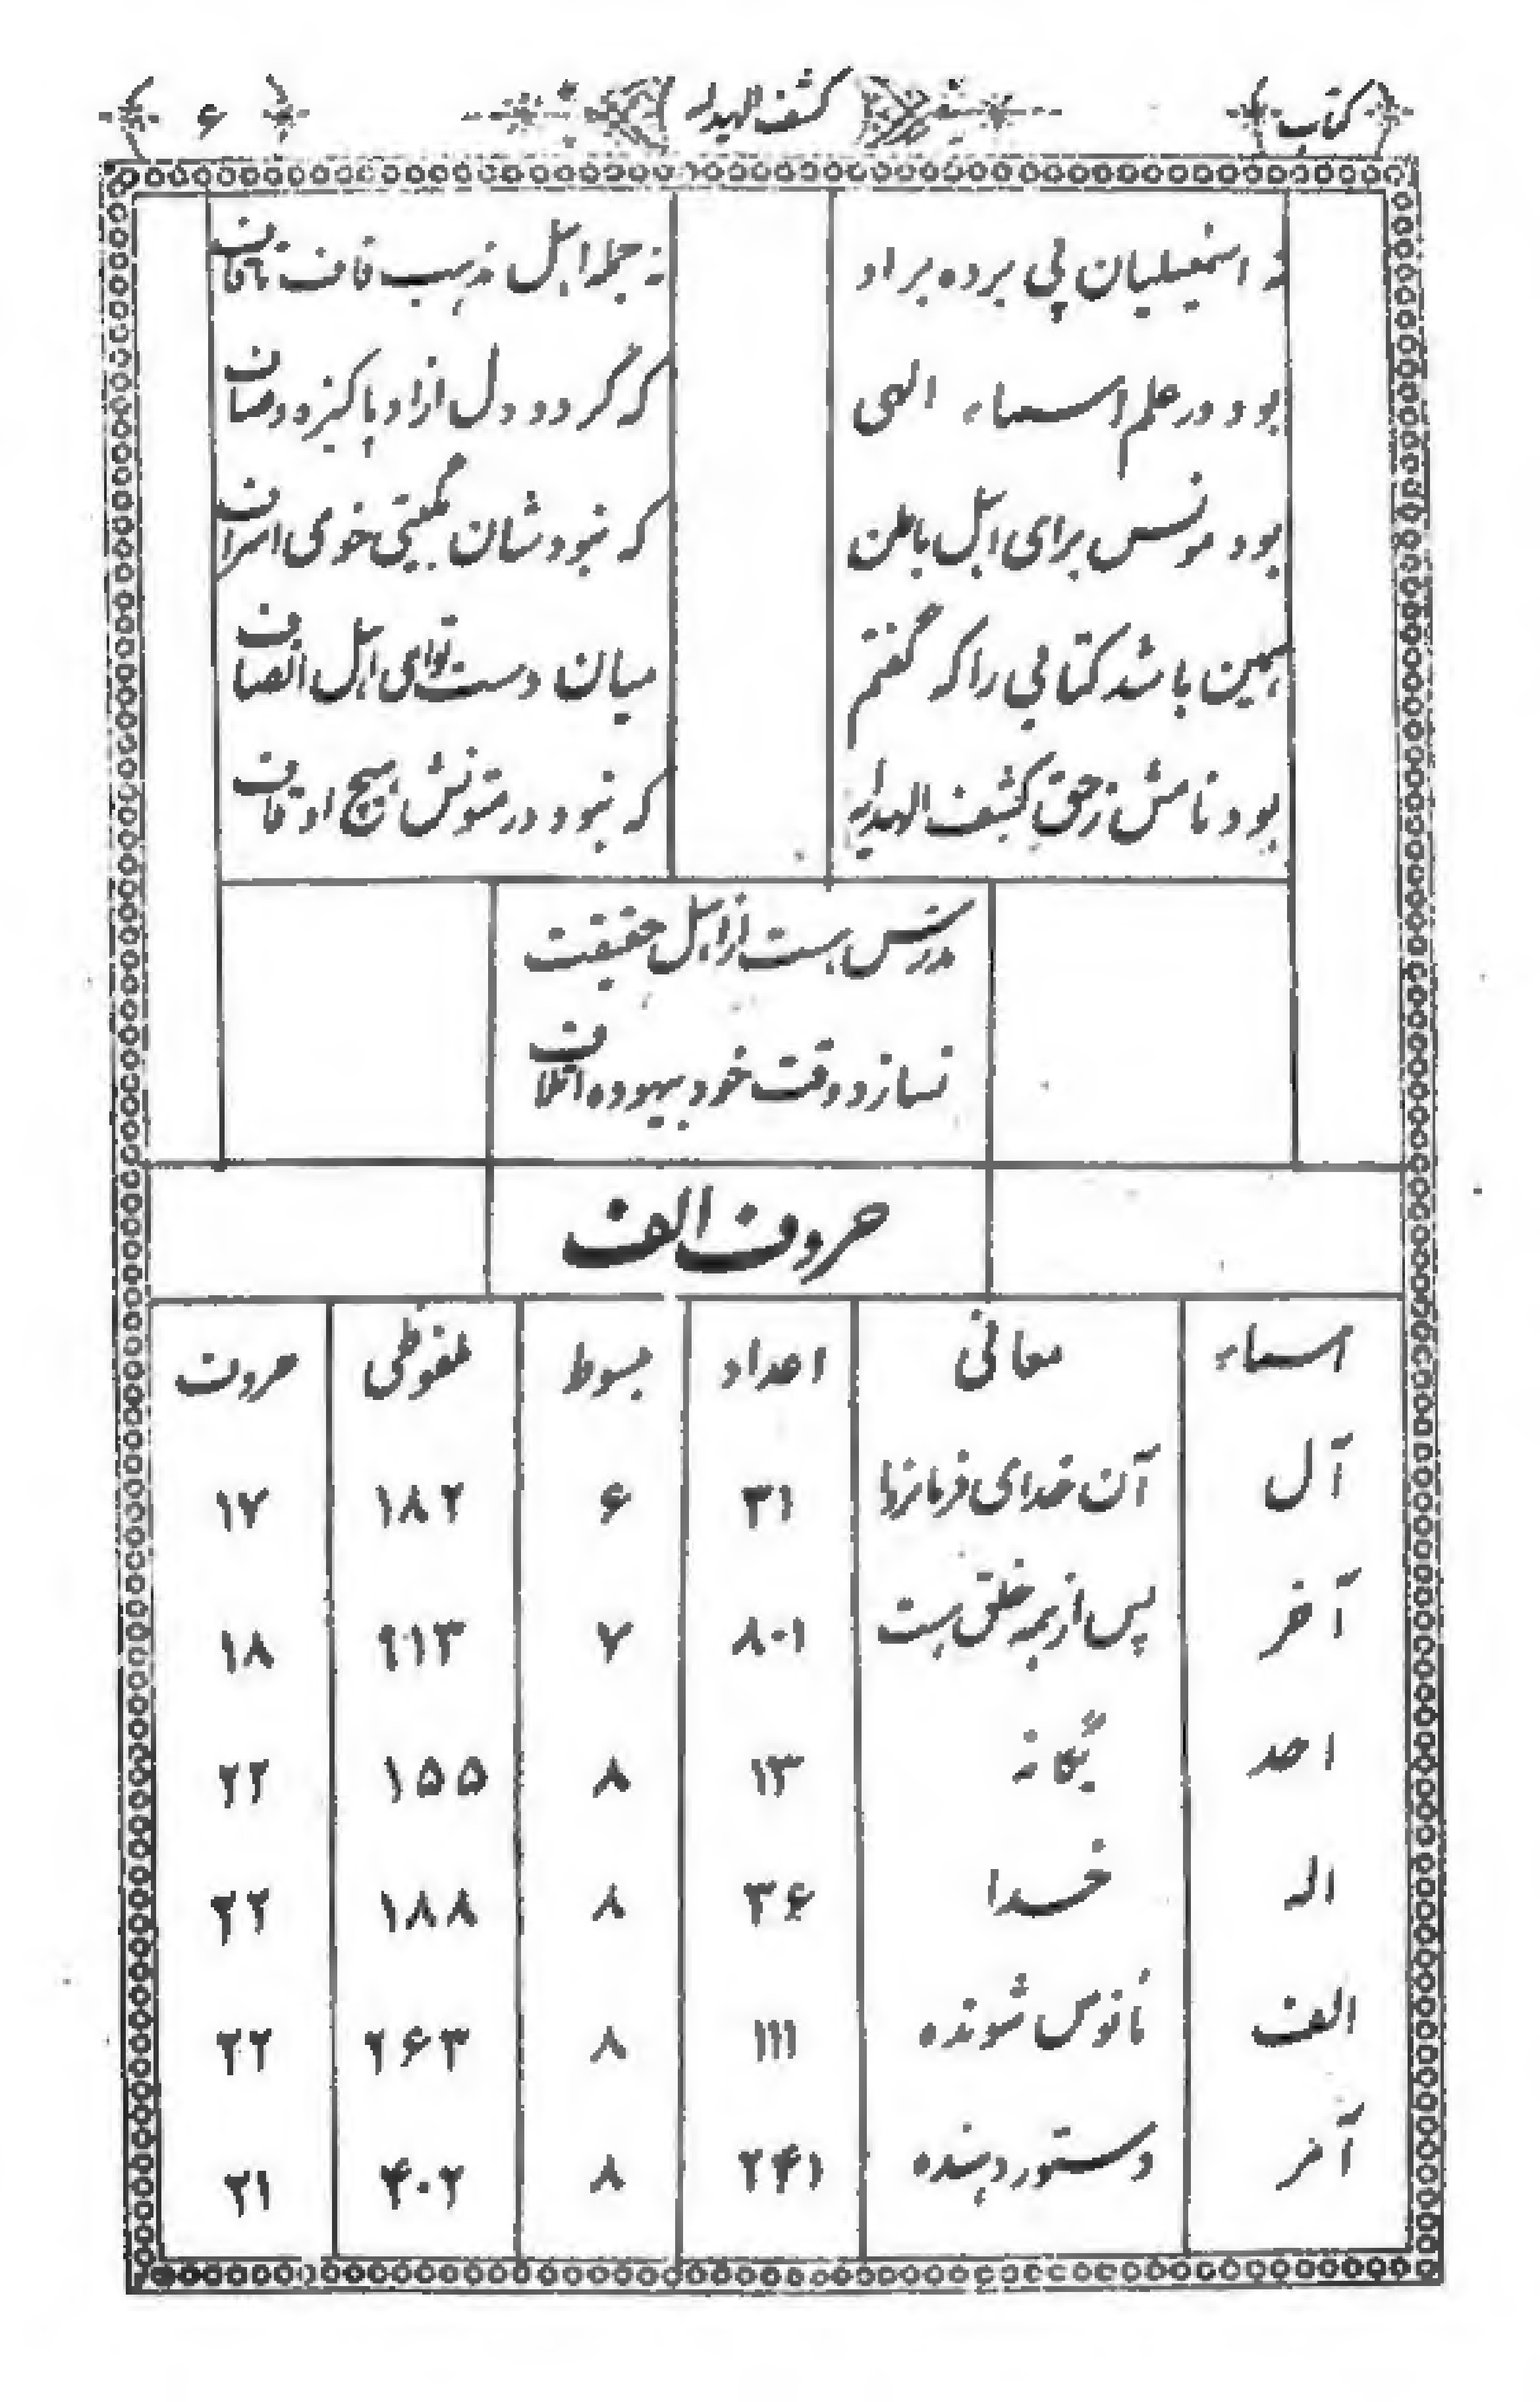 کتاب کشف الهدایه ۶
نه اسمعیلیان پی برده بر او نه جمله اهل مذهب قاف تا قاف
بود در علم اسماء الهی که گردد دل از او پاکیزه و صاف
بود مونس برای اهل باطن که نبود شان بگیتی خوی اسراف
همین باشد کتابی را که گفتم میان دست تو ای اهل انصاف
بود نامش زحق کشف الهدایه که نبود در متونش هیچ او قاف
مدرس هست از اهل حقیقت
نسازد وقت خود بیهوده اتلاف
حروف الف
اسماء معانی اعداد مبسوط ملفوظی حروف
آل آن خدای فرمانروا ۳۱ ۶ ۱۸۲ ۱۷
آخر پس از همه خلق هست ۸۰۱ ۷ ۹۱۳ ۱۸
احد یگانه ۱۳ ۸ ۱۵۵ ۲۲
اله خدا ۳۶ ۸ ۱۸۸ ۲۲
الف مانوس شونده ۱۱۱ ۸ ۲۶۳ ۲۲
آمر دستور دهنده ۲۴۱ ۸ ۴۰۲ ۲۱